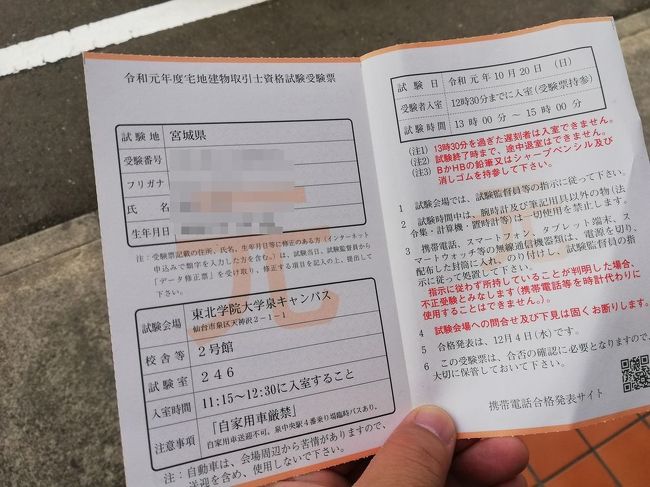 令和元年度宅地建物取引士資格試験受験票
試験地 宮城県
受験番号
フリガナ
氏名
生年月日
注：受験票記載の住所、氏名、生年月日等に修正のある方（インターネット
申込みで顔字を入力した方を含む。）は、試験当日、試験監督員から
「データ修正票」を受け取り、修正する項目を記入の上、提出して
下さい。
試験会場 東北学院大学泉キャンパス
仙台市泉区天神沢2－1－1
校舎等 2号館
試験室 246
入室時間 11:15～12:30に入室すること
注意事項 「自家用車厳禁」
自家用車送迎不可。泉中央駅4番乗り場臨時バスあり。
注：自動車は、会場周辺から苦情がありますので、
送迎を含め、使用しないで下さい。
試験日 令和元年10月20日（日）
受験者入室 12時30分までに入室（受験票持参）
試験時間 13時00分～15時00分
(注1) 13時30分を過ぎた遅刻者は入室できません。
(注2) 試験終了時まで、途中退室はできません。
(注3) BかHBの鉛筆又はシャープペンシル及び
消しゴムを持参して下さい。
1 試験会場では、試験監督員等の指示に従って下さい。
2 試験時間中は、腕時計及び筆記用具以外の物（法
令集・計算機・置時計等）は一切使用を禁止します。
3 携帯電話、スマートフォン、タブレット端末、ス
マートウォッチ等の無線通信機器類は、電源を切り、
配布した封筒に入れ、のり付けし、試験監督員の指
示に従って処置して下さい。
指示に従わず所持していることが判明した場合、
不正受験とみなします（携帯電話等を時計代わりに
使用することはできません）。
4 試験会場への問合せ及び下見は固くお断りします。
5 合格発表は、12月4日(水)です。
6 この受験票は、合否の確認に必要となりますので、
大切に保管しておいて下さい。
携帯電話合格発表サイト
元